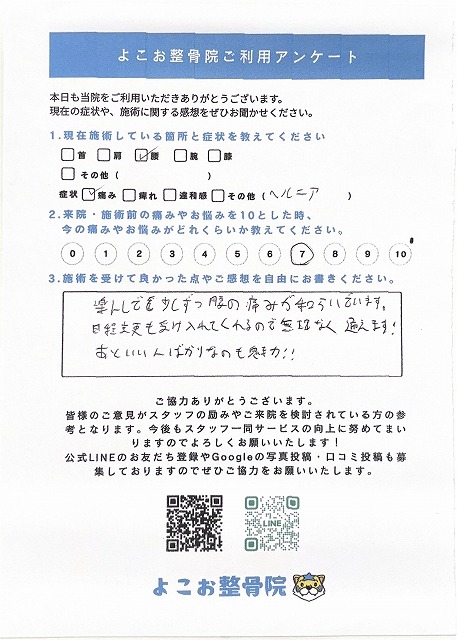 よこお整骨院ご利用アンケート
本日も当院をご利用いただきありがとうございます。
現在の症状や、施術に関する感想をぜひお聞かせください。
1.現在施術している箇所と症状を教えてください
首 肩 腰 腕 膝
その他 ( )
症状 痛み 痺れ 違和感 その他 (ヘルニア )
2.来院・施術前の痛みやお悩みを10とした時、
今の痛みやお悩みがどれくらいか教えてください。
0 1 2 3 4 5 6 7 8 9 10
3.施術を受けて良かった点やご感想を自由にお書きください。
少しずつ腰の痛みが和らいでいます。
日程変更も受け入れてくれるので無理なく通えます!
あといい人ばかりなのも魅力!!
ご協力ありがとうございます。
皆様のご意見がスタッフの励みやご来院を検討されている方の参
考となります。今後もスタッフ一同サービスの向上に努めてまい
りますのでよろしくお願いいたします!
公式LINEのお友だち登録やGoogleの写真投稿・口コミ投稿も募
集しておりますのでぜひご協力をお願いいたします。
LINE
よこお整骨院